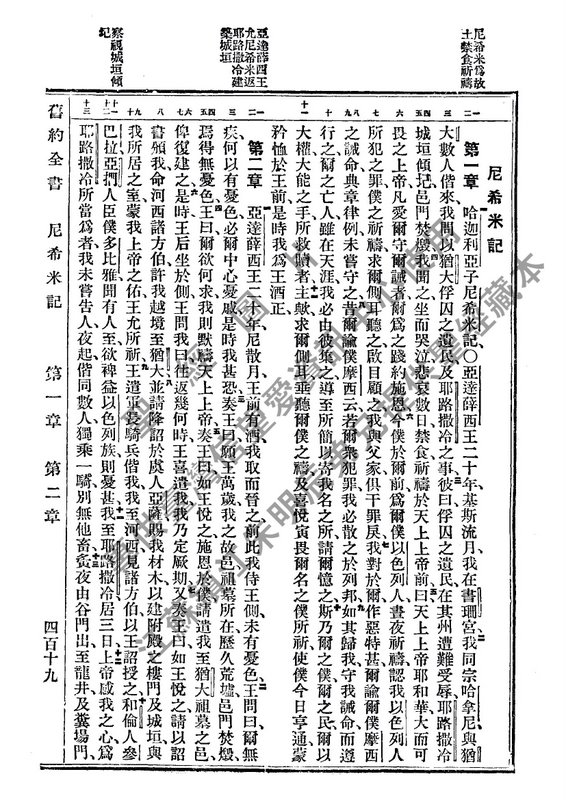 尼希米爲故
土禁食祈禱
亞達薛西王
允尼希米返
耶路撒冷建
築城垣
察視城垣傾
圮
尼希米記
第一章 哈迦利亞子尼希米記〇亞達薛西王二十年基斯流月我在書珊宮我同宗哈拿尼與猶
大數人偕來我問以猶大俘囚之遺民及耶路撒冷之事彼曰俘囚之遺民在其州遭難受辱耶路撒冷
城垣傾圮邑門焚燬我聞之坐而哭泣悲哀數日禁食祈禱於天上上帝前曰天上上帝耶和華大而可
畏之上帝凡愛爾守爾誡者爾爲之踐約施恩今僕於爾前爲爾僕以色列人晝夜祈禱認我以色列人
所犯之罪僕之祈禱求爾側耳聽之啟目顧之我與父家俱干罪戾我對於爾作惡特甚爾諭爾僕摩西
之誡命典章律例未嘗守之昔爾諭僕摩西云若爾衆犯罪我必散之於列邦如其歸我守我誡命而遵
行之爾之亡人雖在天涯我必由彼集之導至所簡以寄我名之所請爾憶之斯乃爾之僕爾之民爾以
大權大能之手所救贖者主歟求爾側耳垂聽爾僕之禱及喜悅寅畏爾名之僕所祈使僕今日亨通蒙
矜恤於王前是時我爲王酒正
第二章 亞達薛西王二十年尼散月王前有酒我取而晉之前此我侍王側未有憂色王問曰爾無
疾何以有憂色必爾中心憂戚是時我甚恐奏王曰願王萬歲我之故邑祖墓所在歷久荒墟邑門焚燬
焉得無憂色王曰爾欲何求我則默禱天上上帝奏王曰如王悅之施恩於僕請遣我至猶大祖墓之邑
俾復建之是時王后坐於側王問我曰往返幾何時王喜遣我我乃定厥期又奏王曰如王悅之請以詔
書頒我命河西諸方伯許我越境至猶大並請降詔於虞人亞薩賜我材木以建附殿之樓門及城垣與
我所居之室蒙我上帝之佑王允所祈王遣軍長騎兵偕我我至河西見諸方伯以王詔授之和倫人參
巴拉亞捫人臣僕多比雅聞有人至欲裨益以色列族則憂甚我至耶路撒冷居三日上帝感我之心爲
耶路撒冷所當爲者我未嘗告人夜起偕同數人獨乘一騎別無他畜夤夜由谷門出至龍井及糞場門
舊約全書 尼希米記 第一章 第二章 四百十九